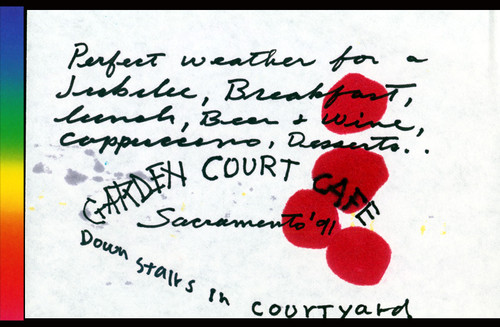 Perfect weather for a
Jubilee, Breakfast,
lunch, Beer & Wine,
cappuccino, Desserts..
GARDEN COURT CAFE
Sacramento '91
Down stairs in courtyard